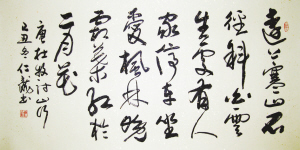 遠上寒山石
徑斜白雲
生處有人
家停車坐
愛楓林晚
霜葉紅於
二月花
唐杜牧詩山行
己丑冬仁龍书